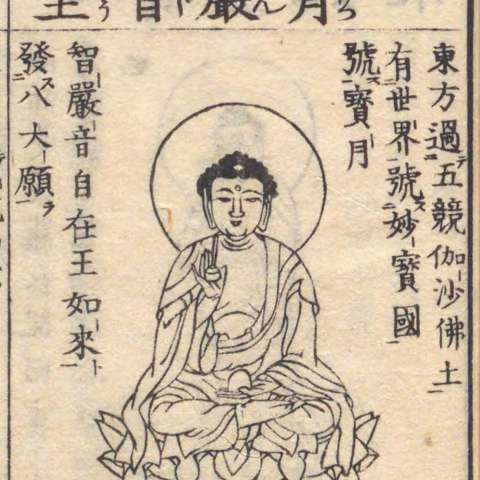 月嚴音王
東方過五競伽沙佛土
有世界號妙寶國
號寶月
智嚴音自在王如來
發八大願